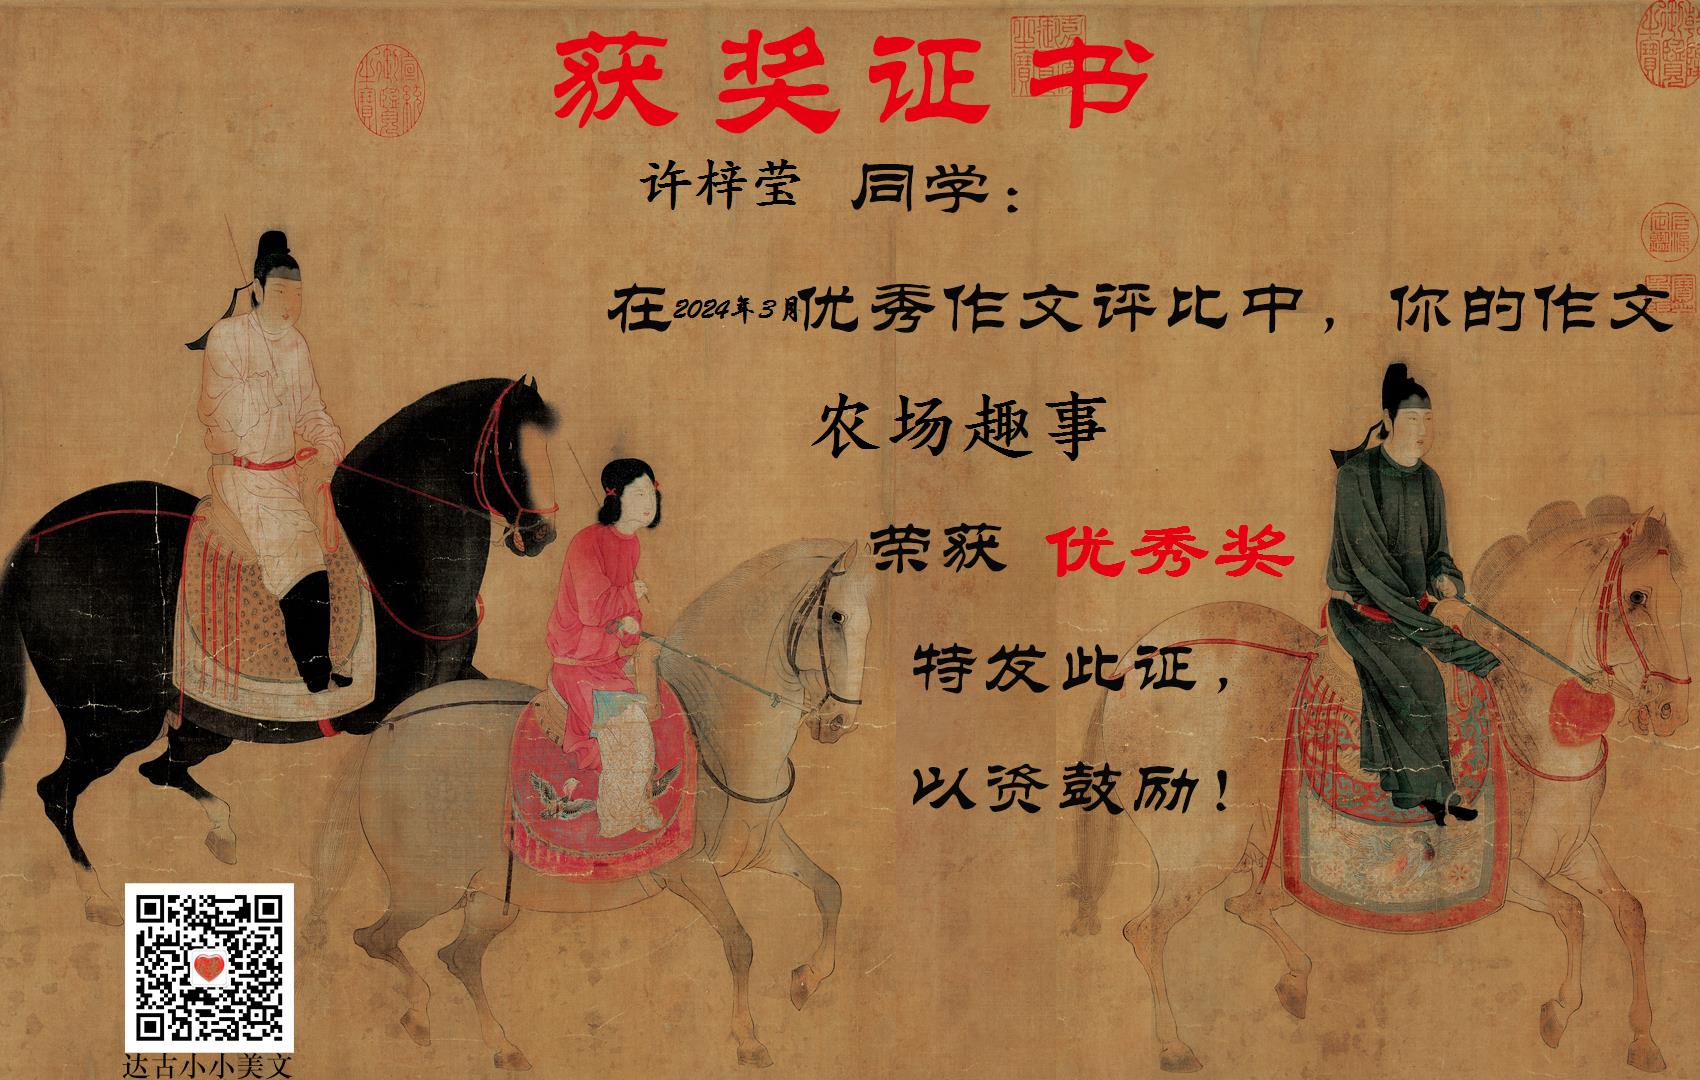 获奖证书
许梓莹 同学：
在2024年3月优秀作文评比中，你的作文
农场趣事
荣获 优秀奖
特发此证，
以资鼓励！
达古小小美文